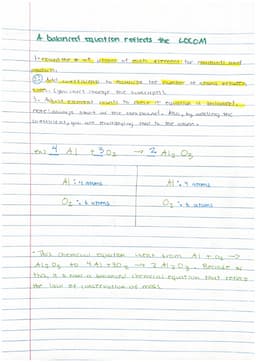 A balanced equation reflects the LOCOM
1. Count the # of atoms of each element for reactants and
products.
2. Add coefficients to equalize the number of atoms between
them. (you can't change the subscripts)
3. Adjust element counts to check if equation is balanced.
note: always start w/ the compound. Also, by adding the
coefficient, you are multiplying that to the atoms.
ex) 4 Al + 3 O₂ → 2 Al₂ O₃
Al: 4 atoms Al: 4 atoms
O₂: 6 atoms O₂: 6 atoms
• This chemical equation went from Al + O₂ →
Al₂O₃ to 4 Al + 3O₂ → 2 Al₂O₃. Because of
this, it is now a balanced chemical equation that
the law of conservation of mass.